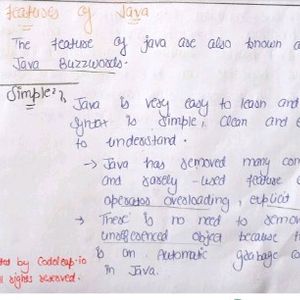 Features of Java
The feature of java are also known a
Java Buzzwords.
Simple:
Java is very easy to learn and
Syntax is simple, clean and e
to understand.
→ Java has removed many com
and rarely-used feature e
operator overloading, explicit
→ There is no need to remov
unreferenced object because th
is an Automatic garbage co
in Java.
ted by Codeleap.io
ll rights reserved.